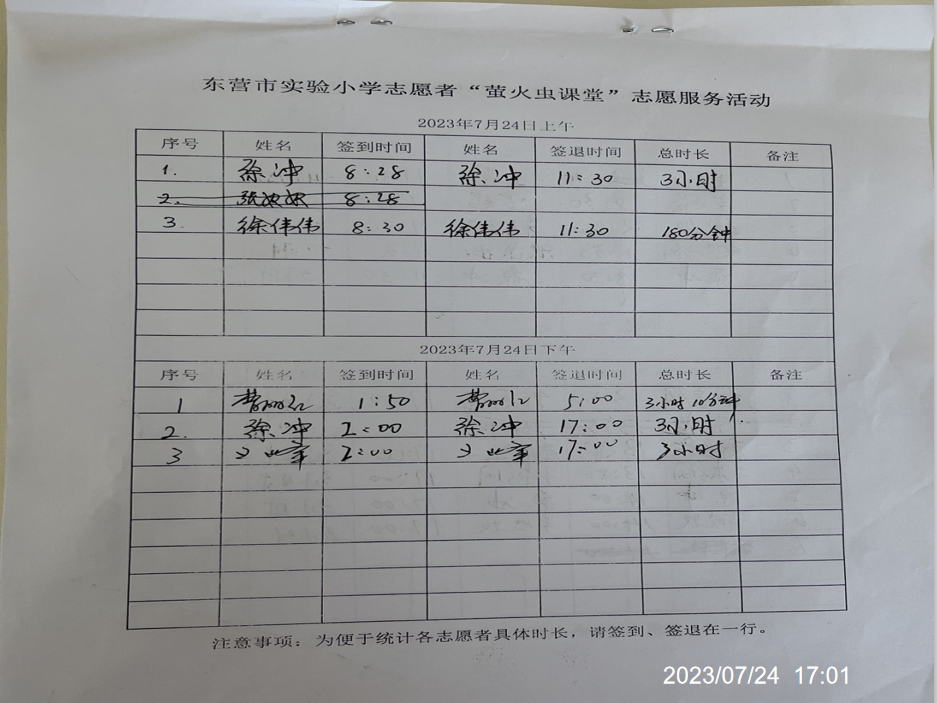 东营市实验小学志愿者“萤火虫课堂”志愿服务活动
2023年7月24日上午
序号 姓名 签到时间 姓名 签退时间 总时长 备注
1. 徐冲 8:28 徐冲 11:30 3小时
2. 8:28
3 徐伟伟 8:30 徐伟伟 11:30 180分钟
2023年7月24日下午
序号 姓名 签到时间 姓名 签退时间 总时长 备注
1 1:50 5:00 3小时10分钟
2. 徐冲 2:00 徐冲 17:00 3小时
3 2:00 17:00 3小时
注意事项：为便于统计各志愿者具体时长，请签到、签退在一行。
2023/07/24 17:01